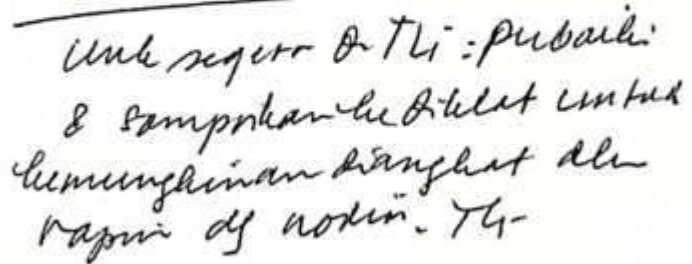 Untuk segera di TLi : perbaiki
& sampaikan ke diklat untuk
kemungkinan diangkat dlm
rapim dg